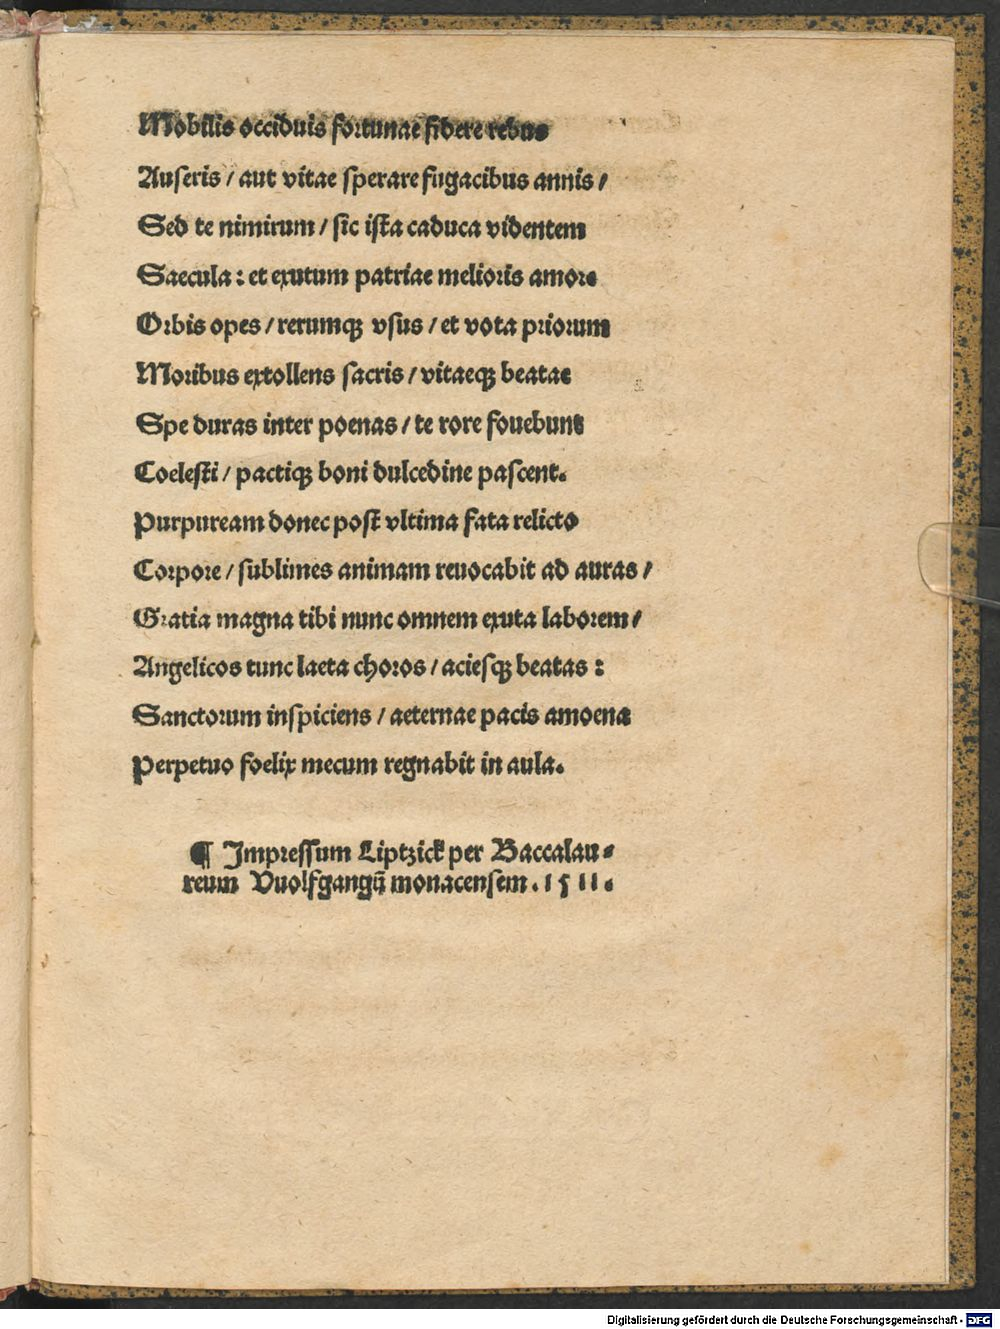 Mobilis occiduis fortunae fidere rebus
Auseris / aut vitae sperare fugacibus annis /
Sed te nimirum / sic ista caduca videntem
Saecula : et exutum patriae melioris amore
Orbis opes / rerumqꝫ vsus / et vota priorum
Moribus extollens sacris / vitaeqꝫ beatae
Spe duras inter poenas / te rore fouebunt
Coelesti / pactiqꝫ boni dulcedine pascent.
Purpuream donec post vltima fata relicto
Corpore / sublimes animam reuocabit ad auras /
Gratia magna tibi nunc omnem exuta laborem /
Angelicos tunc laeta choros / aciesqꝫ beatas :
Sanctorum inspiciens / aeternae pacis amoena
Perpetuo foelix mecum regnabit in aula.
¶ Impressum Liptzick per Baccalau⸗
reum Vuolfgangū monacensem . 1511.
Digitalisierung gefördert durch die Deutsche Forschungsgemeinschaft - DFG